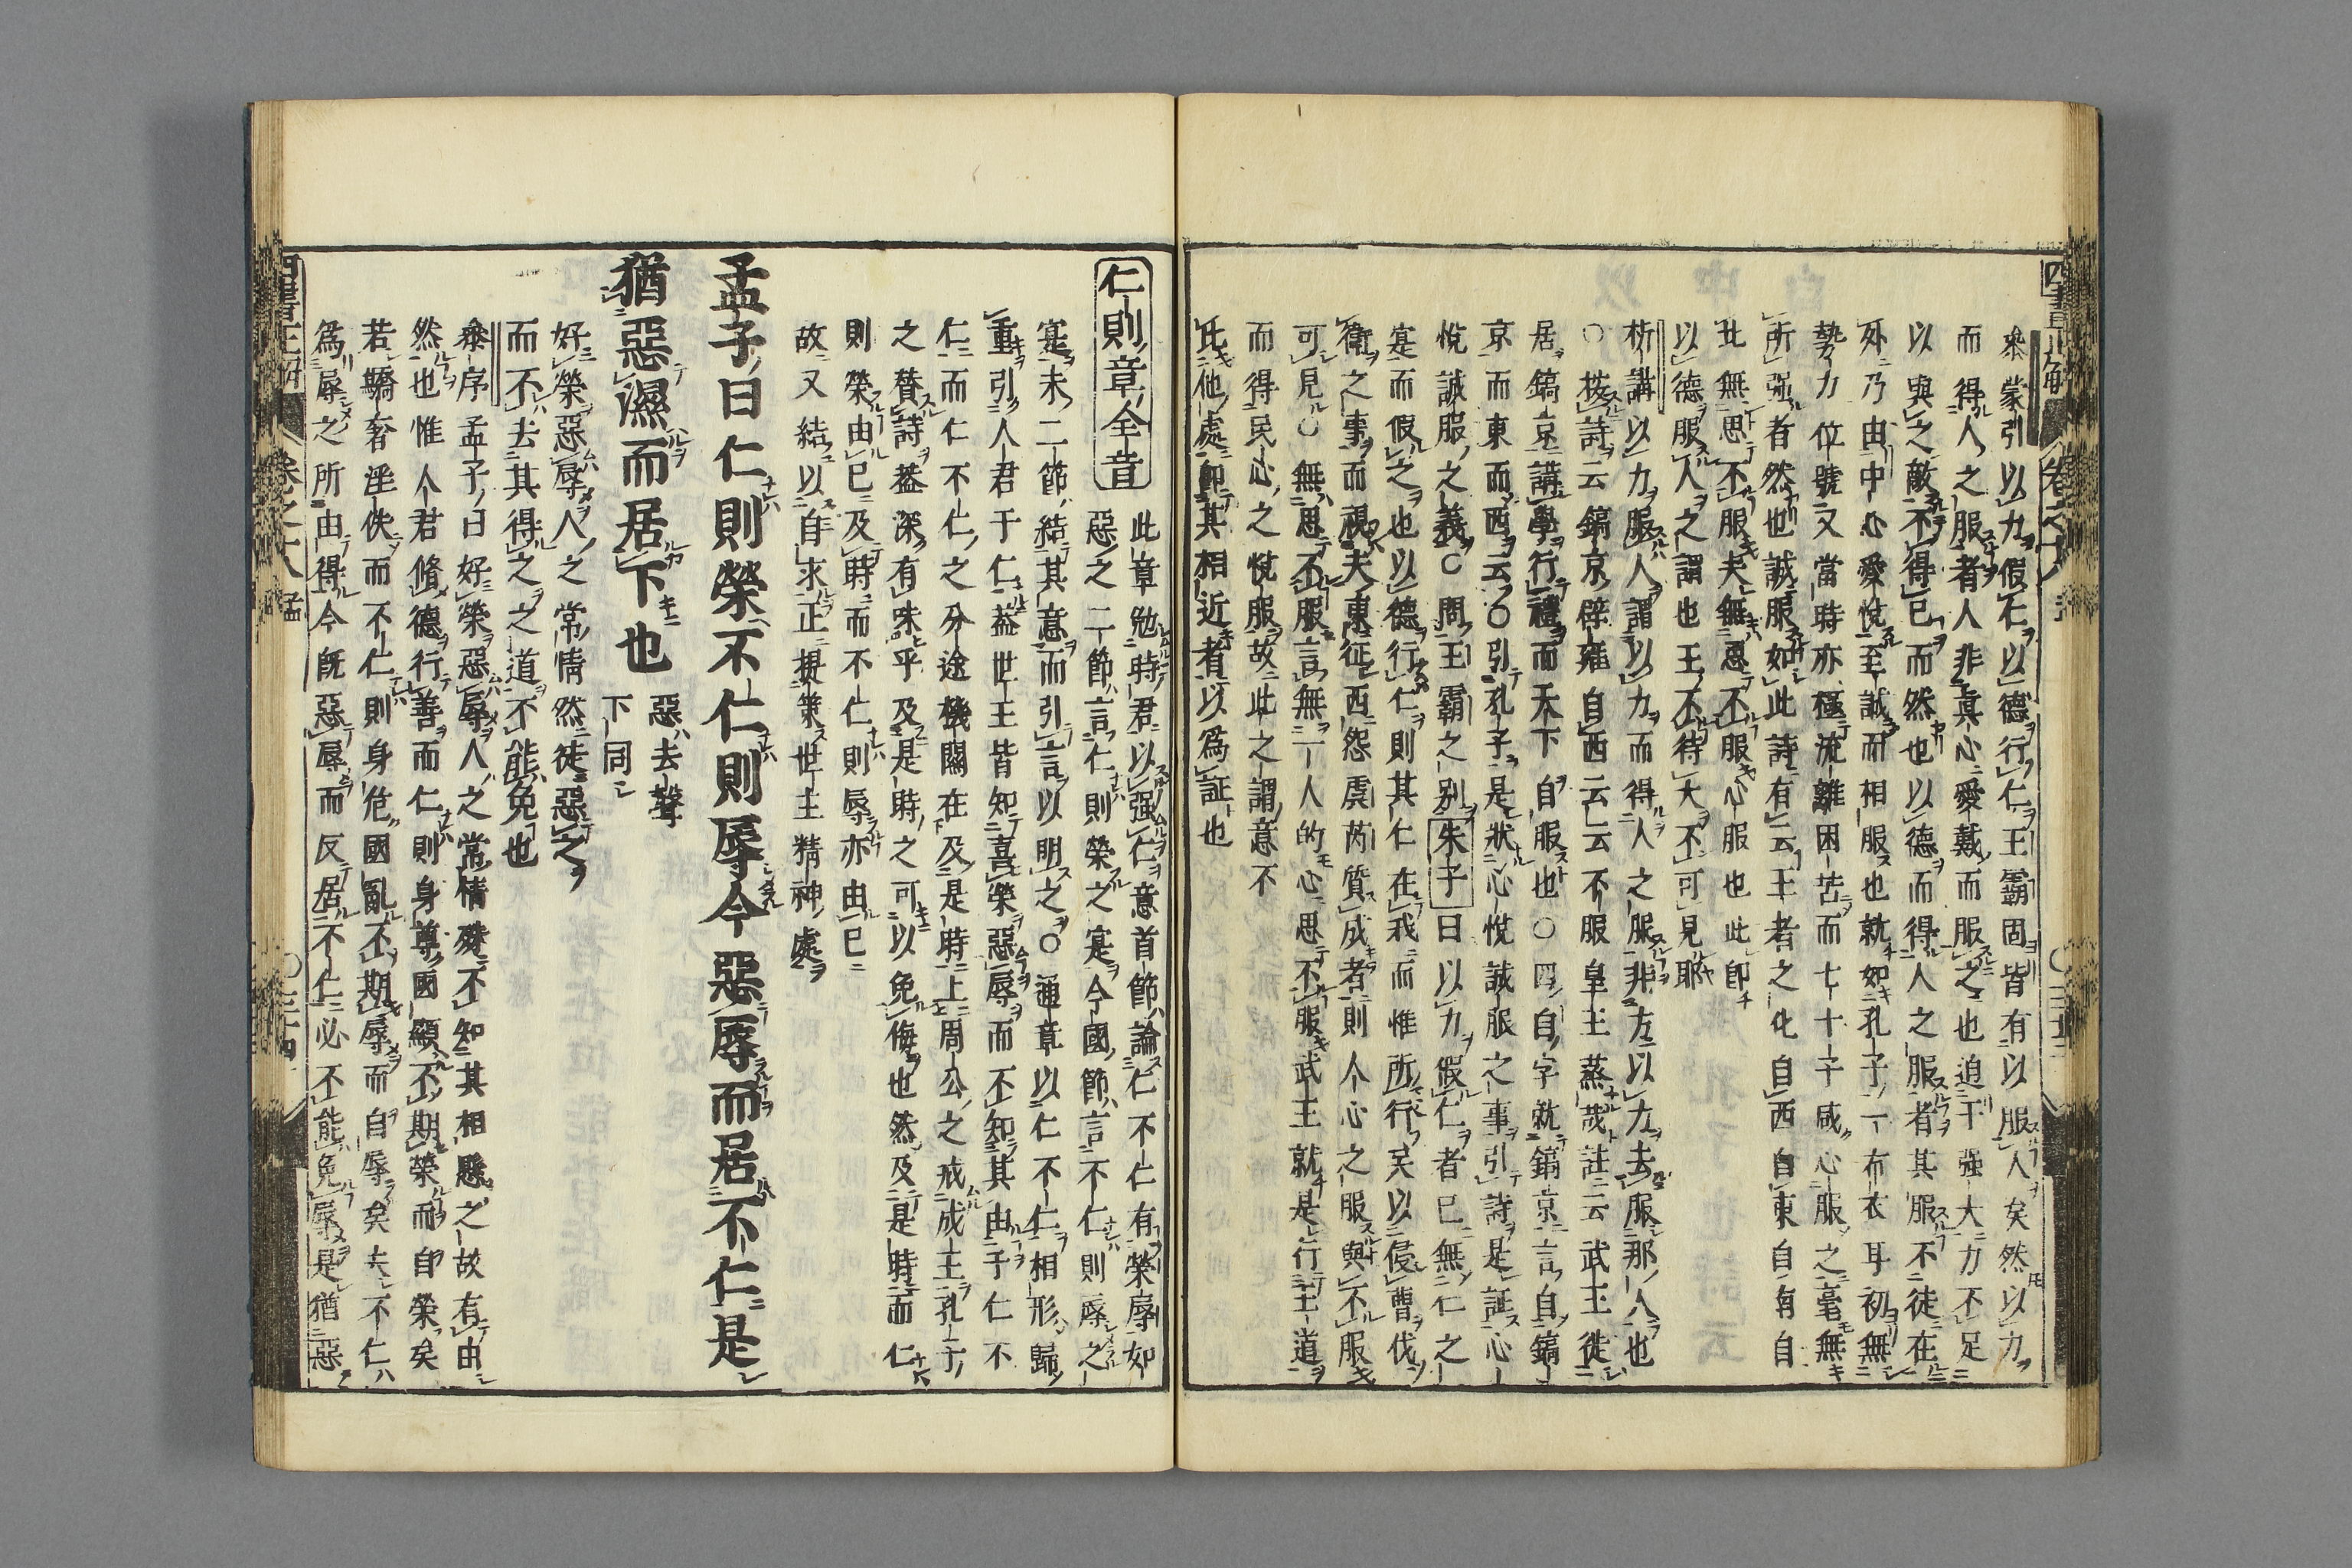 叅蒙引以力假仁以德行仁王霸固皆有以服人矣然以力
而得人之服者人非真心愛戴而服之也迫于强大力不足
以與之敵不得已而然也以德而得人之服者其服不徒在
外乃由中心愛悅至誠而相服也就如孔子一布衣耳初無
勢力位號又當時亦極流離困苦而七十子咸心服之毫無
所强者然也誠服如此詩有云王者之化自西自東自南自
北無思不服夫無思不服心服也此即
以德服人之謂也王不待大不可見耶
析講以力服人謂以力而得人之服非方以力去服那人也
○按詩云鎬京辟雍自西云云不服皇王蒸哉註云武王徙
居鎬京講學行禮而天下自服也○四自字就鎬京言自鎬
京而東而西云○引孔子是狀心悅誠服之事引詩是証心
悅誠服之義○問王霸之別朱子曰以力假仁者已無仁之
寔而假之也以德行仁則其仁在我而惟所行矣以侵曹伐
衛之事而視夫東征西怨虞芮質成者則人心之服與不服
可見○無思不服言無一人的心思不服武王就是行王道
而得民心之悅服故此之謂意不
比他處即其相近者以為証也
仁則章全旨
此章勉時君以强仁意首節論仁不仁有榮辱如
惡之二節言仁則榮之寔今國節言不仁則辱之
寔末二節結其意而引言以明之○通章以仁不仁相形歸
重引人君于仁蓋世主皆知喜榮惡辱而不知其由于仁不
仁而仁不仁之分途機關在及是時上周公之戒成王孔子
之賛詩葢深有味乎及是時之可以免侮也然及是時而仁
則榮由已及時而不仁則辱亦由已
故又結以自求正提策世主精神處
孟子曰仁則榮不仁則辱今惡辱而居不仁是
猶惡濕而居下也
惡去聲
下同
好榮惡辱人之常情然徒惡之
而不去其得之之道不能免也
叅序孟子曰好榮惡辱人之常情殊不知其相懸之故有由
然也惟人君脩德行善而仁則身尊國顯不期榮而自榮矣
若驕奢淫佚而不仁則身危國亂不期辱而自辱矣夫不仁
為辱之所由得今既惡辱而反居不仁必不能免辱是猶惡